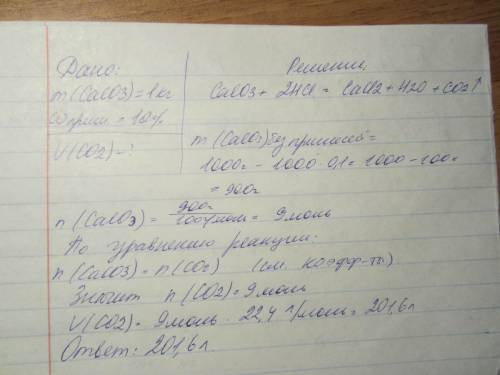 Дано:
m(CaCO3)=1кг
ω прим. = 10%
V(CO2)-?
Решение:
CaCO3 + 2HCl = CaCl2 + H2O + CO2↑
m(CaCO3) без примесей =
1000г - 1000·0,1 = 1000 - 100г
= 900г
n(CaCO3) = 900г/100г/моль = 9моль
По уравнению реакции:
n(CaCO3) = n(CO2) (см. коэфф-ты)
Значит n(CO2)=9моль
V(CO2) = 9моль · 22,4 л/моль = 201,6л
Ответ: 201,6л.